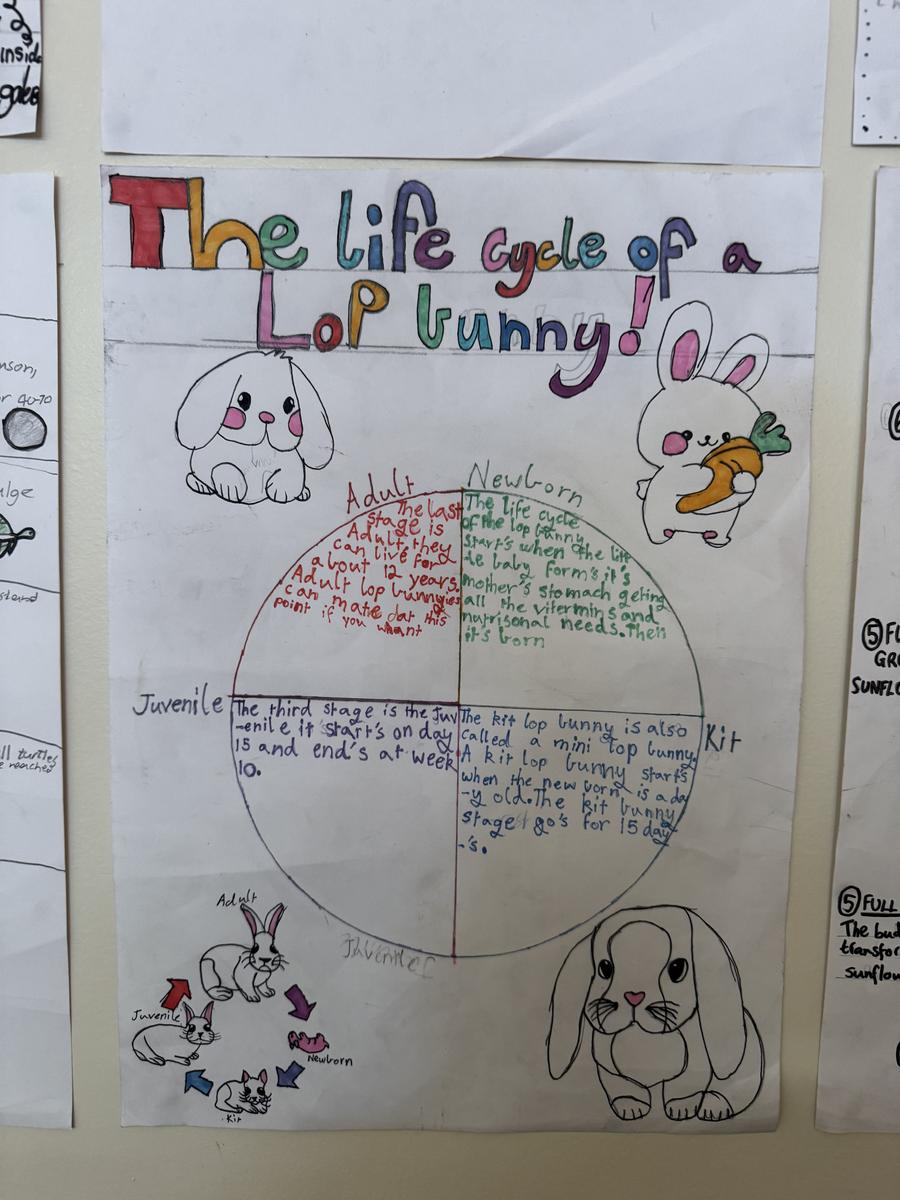 inside
The life cycle of a
Lop bunny!
Adult
The last
stage is
Adult, they
can live for
about 12 years.
Adult lop bunnyies
can mate dat this
point if you whant
Newborn
The life cycle
of the lop bunny
start's when the litt
-le baby form's it's
mother's stomach geting
all the vitermins and
nutrisonal needs. Then
it's born
Juvenile
The third stage is the Juv
-enile it start's on day
15 and end's at week
10.
Kit
The kit lop bunny is also
called a mini lop bunny.
A kit lop bunny starts
when the new born is a da
-y old. The kit bunny
stage go's for 15 day
-'s.
Juvenile
Adult
Juvenile
Newborn
Kit
or 40-70
ll turtles
e reached
5 FU
GRO
SUNFLO
5 FULL
The bud
transfor
sunflow